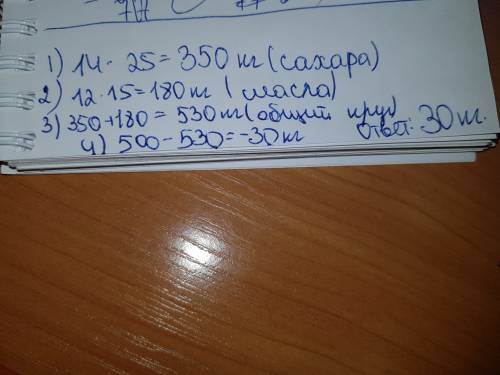 1) 14 · 25 = 350 кг (сахара)
2) 12 · 15 = 180 кг (масла)
3) 350 + 180 = 530 кг (общий груз)
4) 500 - 530 = -30 кг
Ответ: 30 кг.